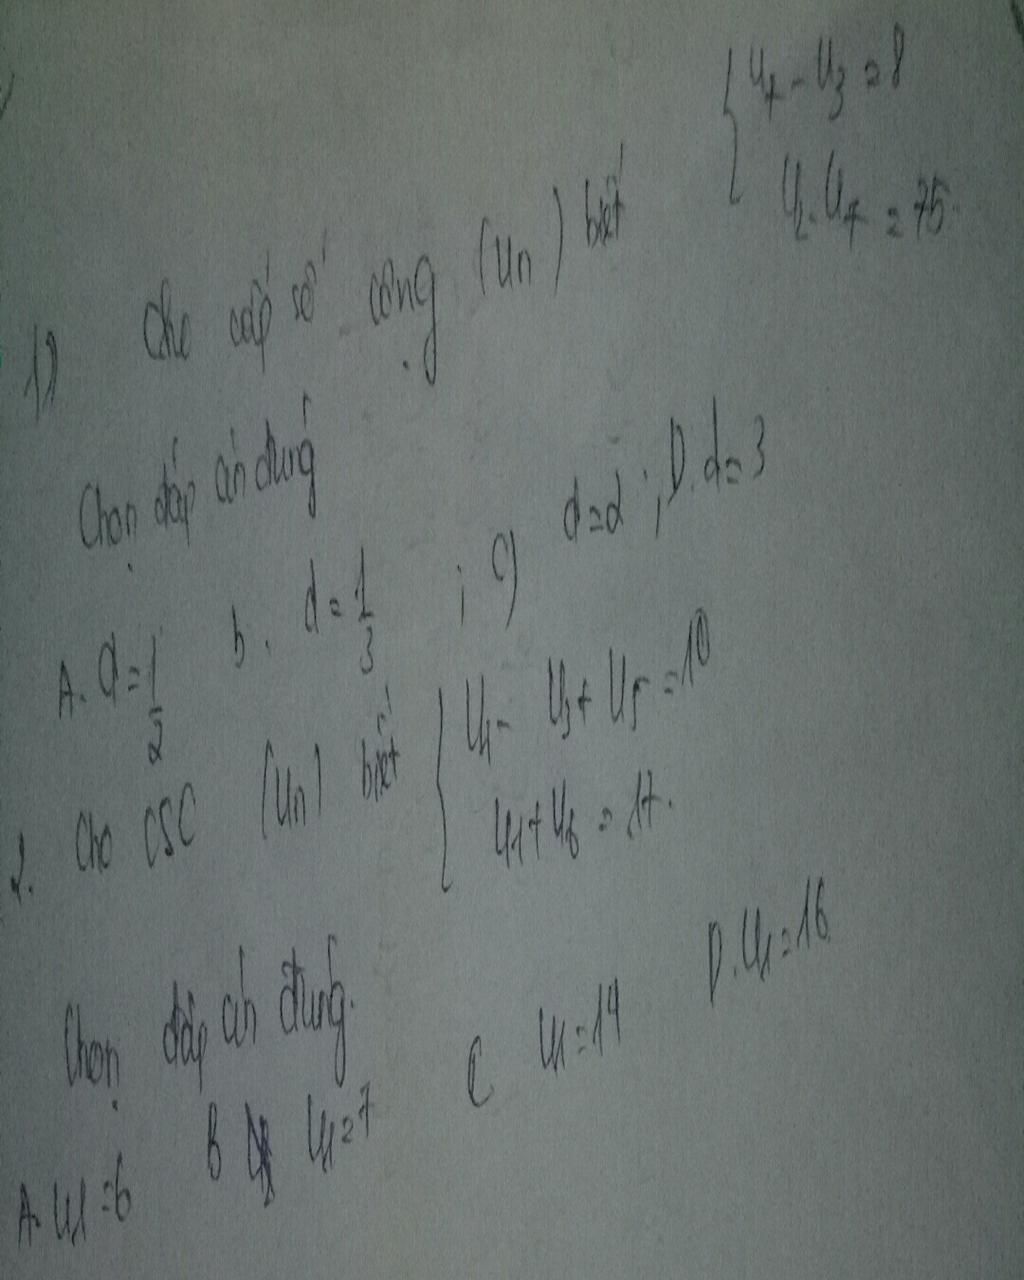 1) Cho cấp số cộng (un) biết { u7 - u3 = 8
u2.u7 = 75.
Chọn đáp án đúng
A. d = 1/2 b. d = 1/3 ; c) d = 2 ; D. d = 3
2. Cho CSC (un) biết { u1 - u3 + u5 = 10
u1 + u6 = 17.
Chọn đáp án đúng.
A. u1 = 6 B u1 = 7 C u1 = 14 D. u1 = 16